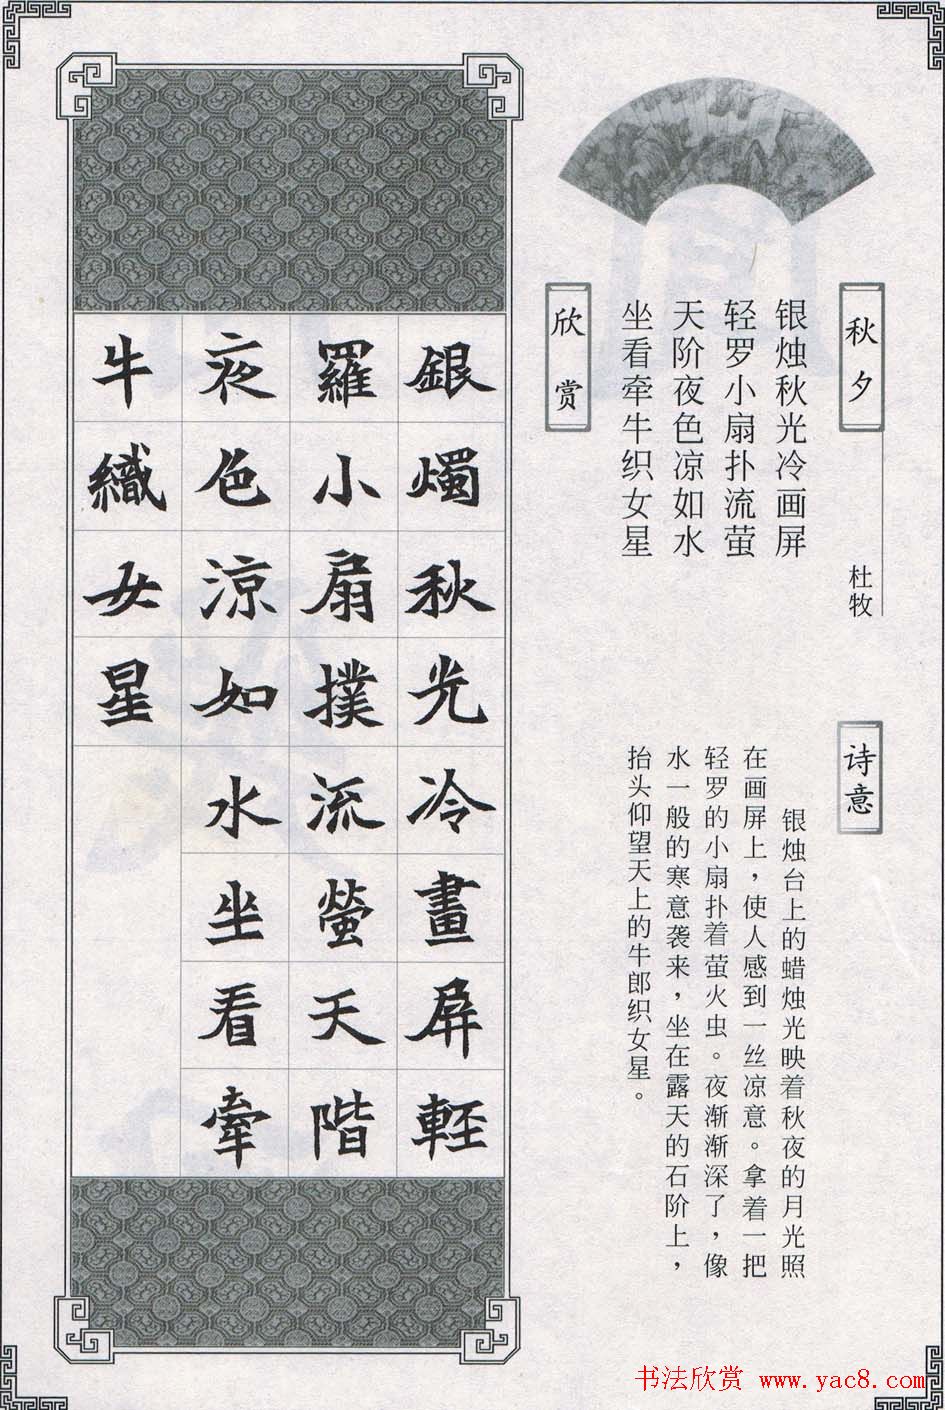 秋夕
杜牧
银烛秋光冷画屏
轻罗小扇扑流萤
天阶夜色凉如水
坐看牵牛织女星
欣赏
诗意
银烛台上的蜡烛光映着秋夜的月光照
在画屏上，使人感到一丝凉意。拿着一把
轻罗的小扇扑着萤火虫。夜渐渐深了，像
水一般的寒意袭来，坐在露天的石阶上，
抬头仰望天上的牛郎织女星。
銀燭秋光冷畫屏輕
羅小扇撲流螢天階
夜色涼如水坐看牽
牛織女星
书法欣赏 www.yac8.com